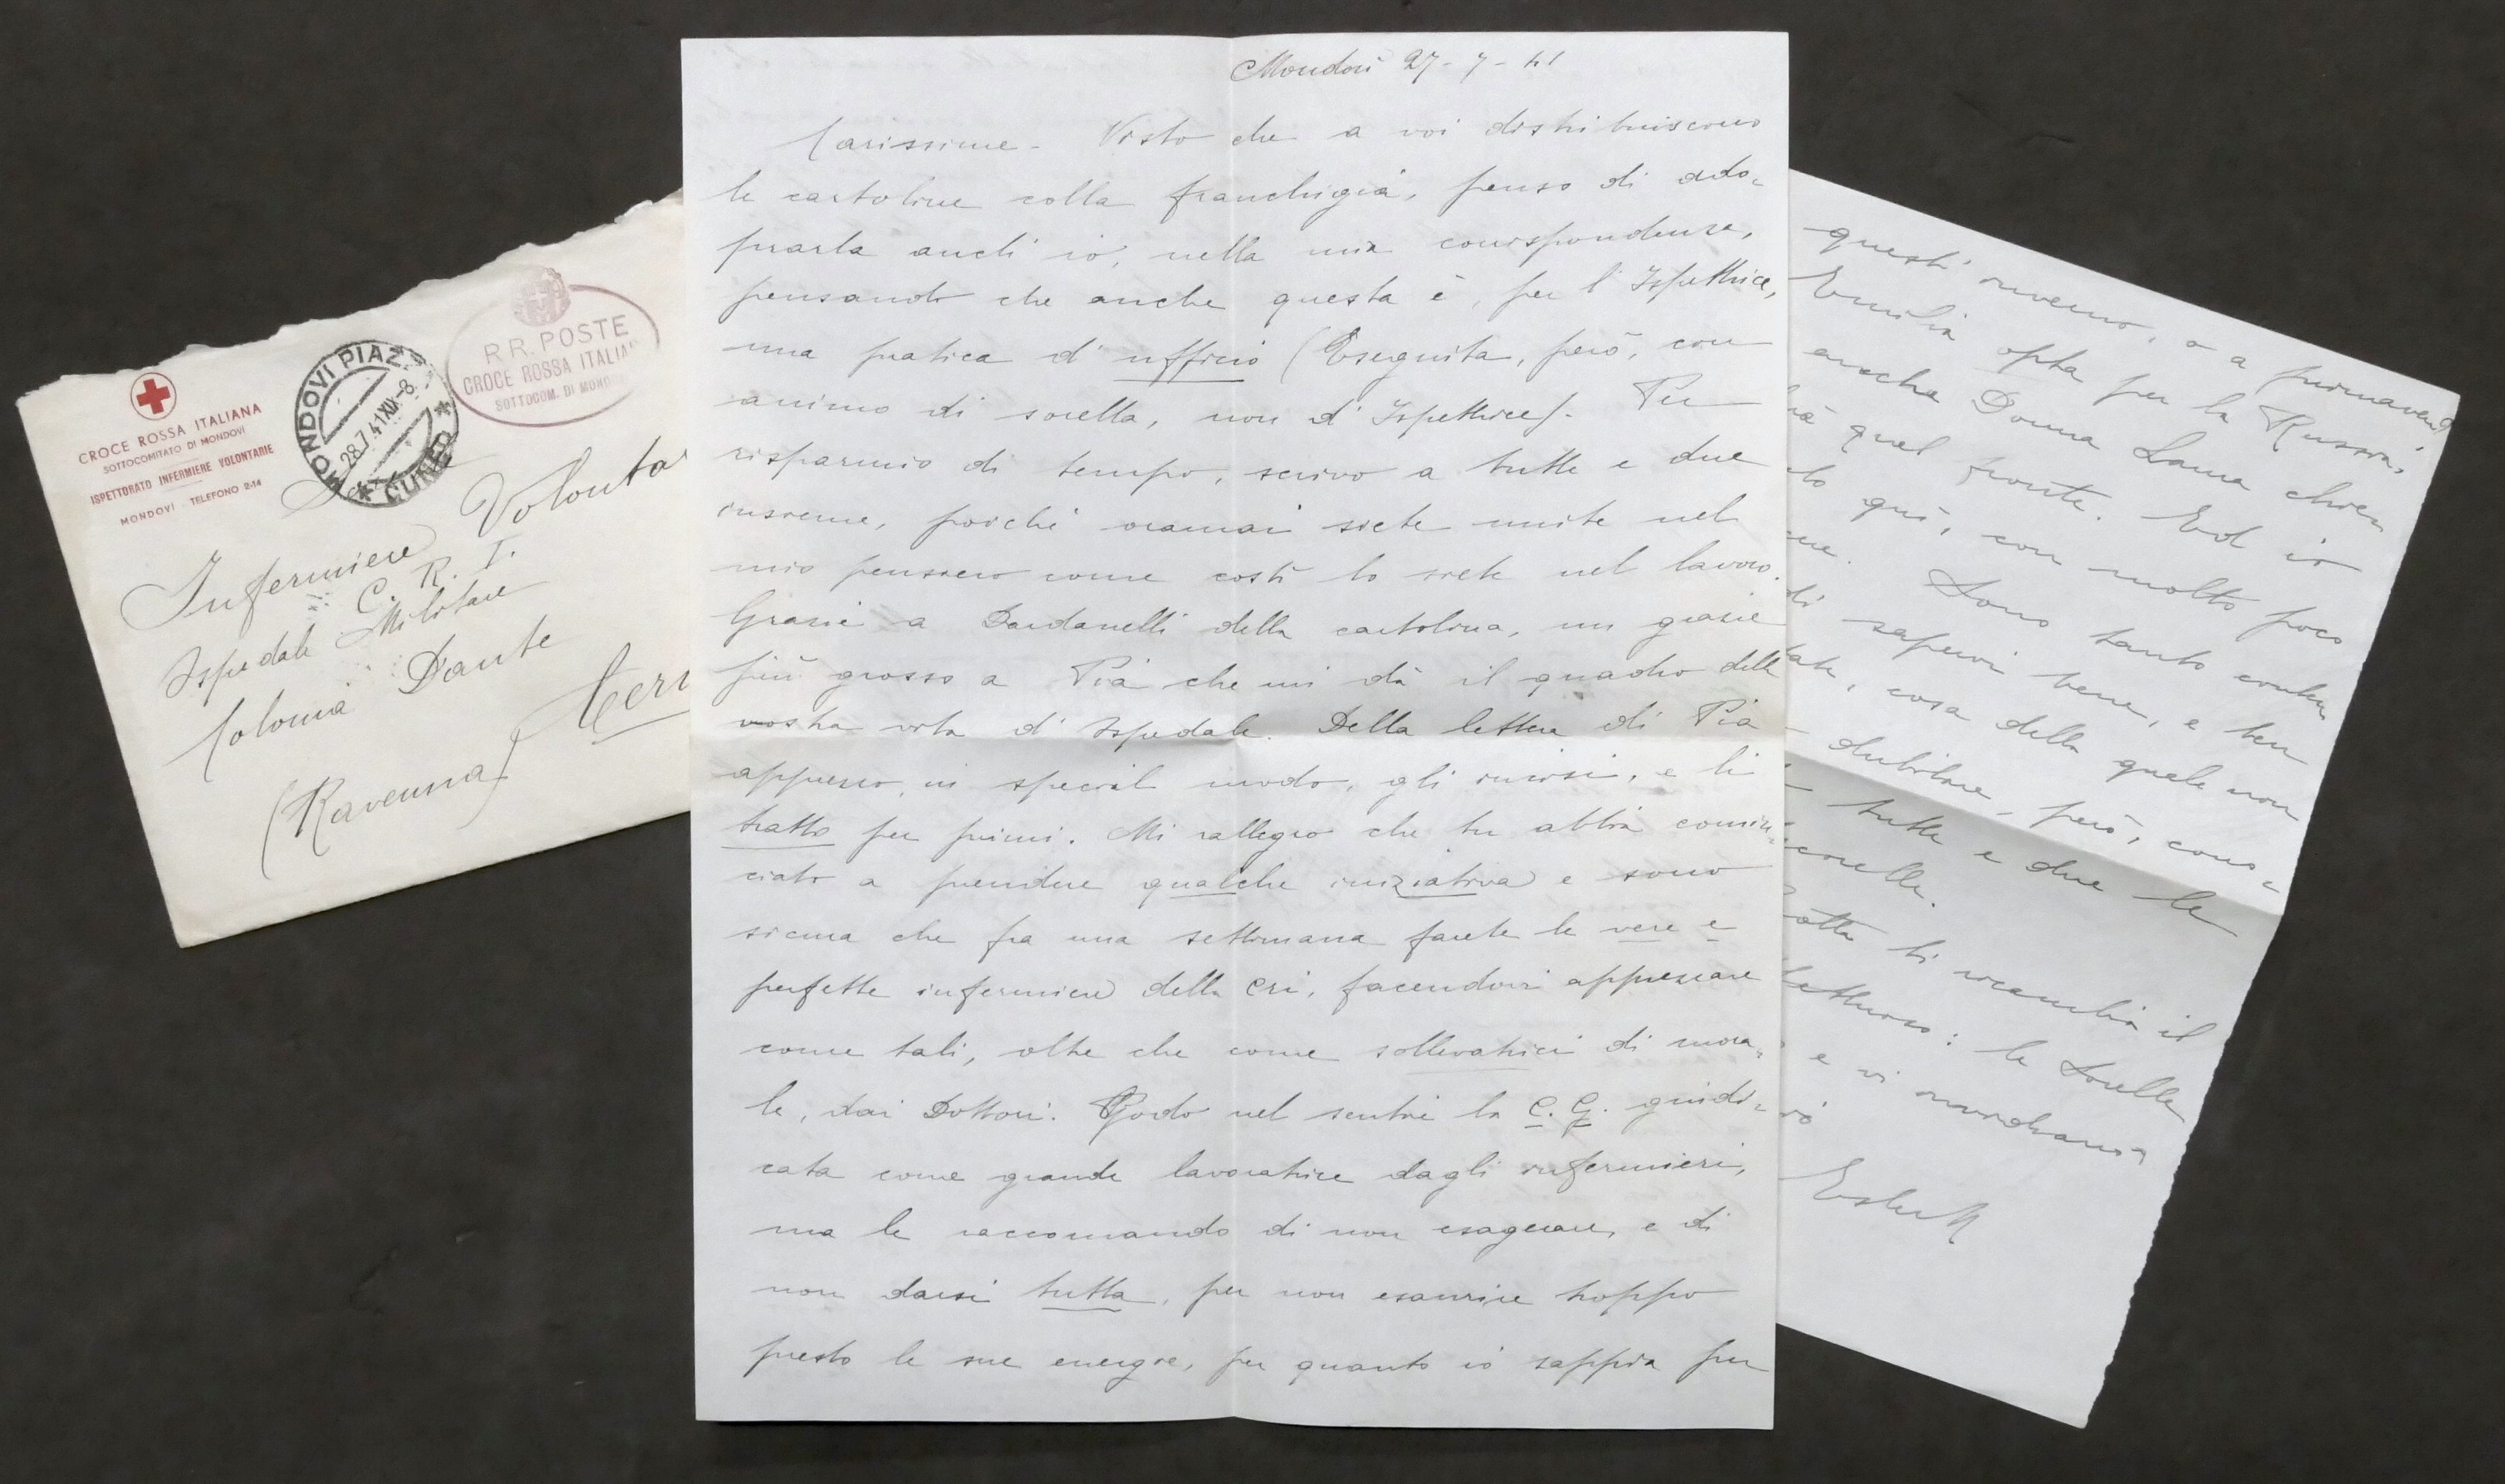 CROCE ROSSA ITALIANA
SOTTOCOMITATO DI MONDOVÌ
ISPETTORATO INFERMIERE VOLONTARIE
MONDOVÌ - TELEFONO 2-14
MONDOVI PIAZ
28.7.41 XIX - 8
* CUNEO *
RR. POSTE
CROCE ROSSA ITALIAN
SOTTOCOM. DI MOND
Infermiere Volonta
C. R. I.
Ospedale Militare
Colonia Dante
Cerv
(Ravenna)
Mondovì 27-7-41
Carissime - Visto che a voi distribuiscono
le cartoline colla franchigia, penso di ado-
prarla anch'io, nella mia corrispondenza,
pensando che anche questa è, per l'Ispettrice,
una pratica d'ufficio (Eseguita, però, con
animo di sorella, non d'Ispettrice). Per
risparmio di tempo, scrivo a tutte e due
insieme, poichè oramai siete unite nel
mio pensiero come costì lo siete nel lavoro.
Grazie a Dardanelli della cartolina, un grazie
più grosso a Pia che mi dà il quadro della
vostra vita d'Ospedale. Della lettera di Pia
apprezzo, in special modo, gli incisi, e li
tratto per primi. Mi rallegro che tu abbia comin-
ciato a prendere qualche iniziativa e sono
sicura che fra una settimana farete le vere e
perfette infermiere della Cri, facendovi apprezzare
come tali, oltre che come sollevatrici di mora-
le, dai Dottori. Godo nel sentire la C. G. giudi-
cata come grande lavoratrice dagli infermieri,
ma le raccomando di non esagerare, e di
non darsi tutta, per non esaurire troppo
presto le sue energie, per quanto io sappia per
quest'inverno, o a primavera,
Emilia opta per la Russia,
anche Donna Laura chie
rà quel fronte. Ed io
qui, con molto poco
Sono tanto conten
di sapervi bene, e ben
tate, cosa della quale non
dubitavo, però, cono-
tutte e due le
sorelle.
ti ricambia il
affettuoso: le Sorelle
e vi ricordiamo